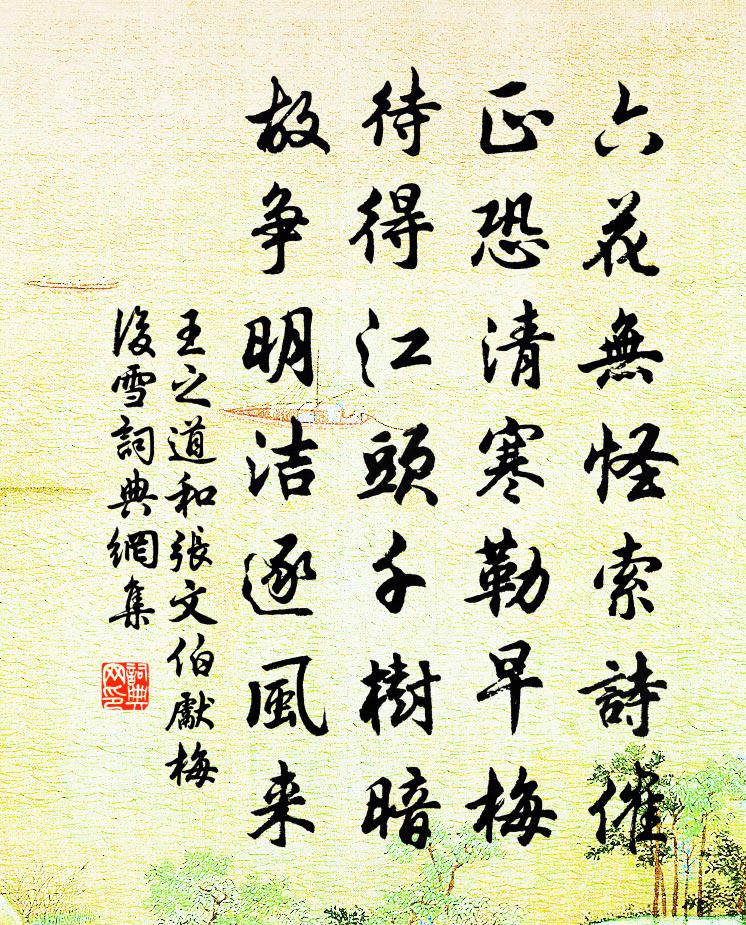 六花無怪索詩催
正恐清寒勒早梅
待得江頭千樹暗
故争明洁逐風来
王之道和張文伯獻梅
後雪詞典網集
詞典
网印